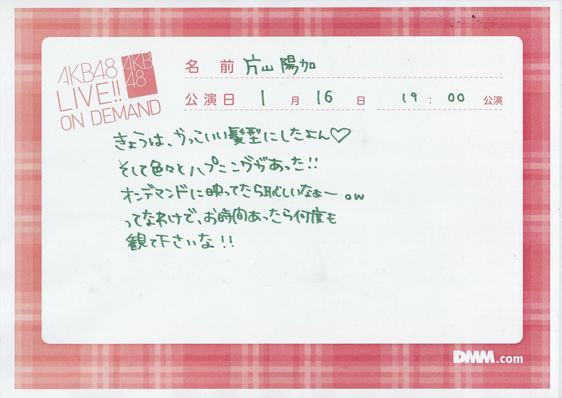 AKB48
LIVE!!
ON DEMAND
AKB
48
名 前 片山 陽加
公演日 1 月 16 日 19 : 00 公演
きょうは、かっこいい髪型にしたよん♡
そして色々とハプニングがあった!!
オンデマンドに映ってたら恥しいなぁー。ww
ってなわけで、お時間あったら何度も
観て下さいな!!
DMM.com